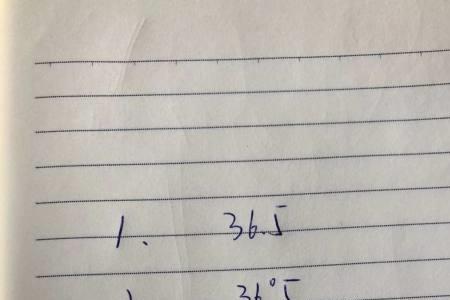 1. 36.5
36°5